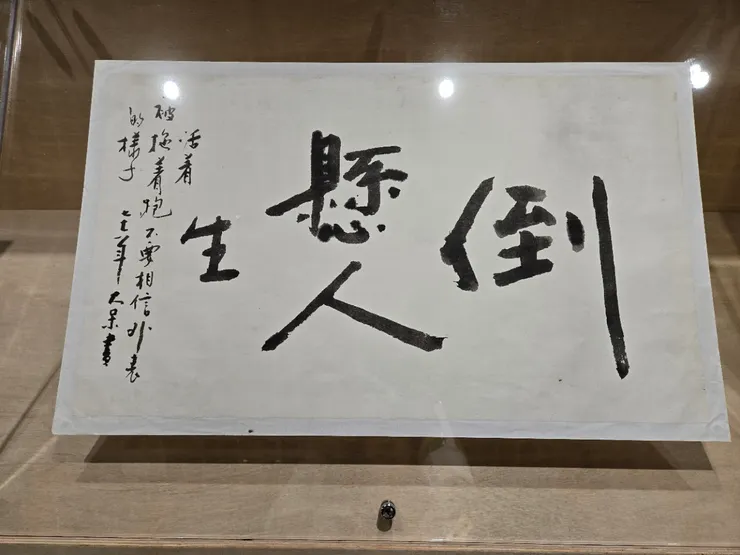 倒
懸人
生
活着
被拖着跑不要相信外表
的樣子 大呆書